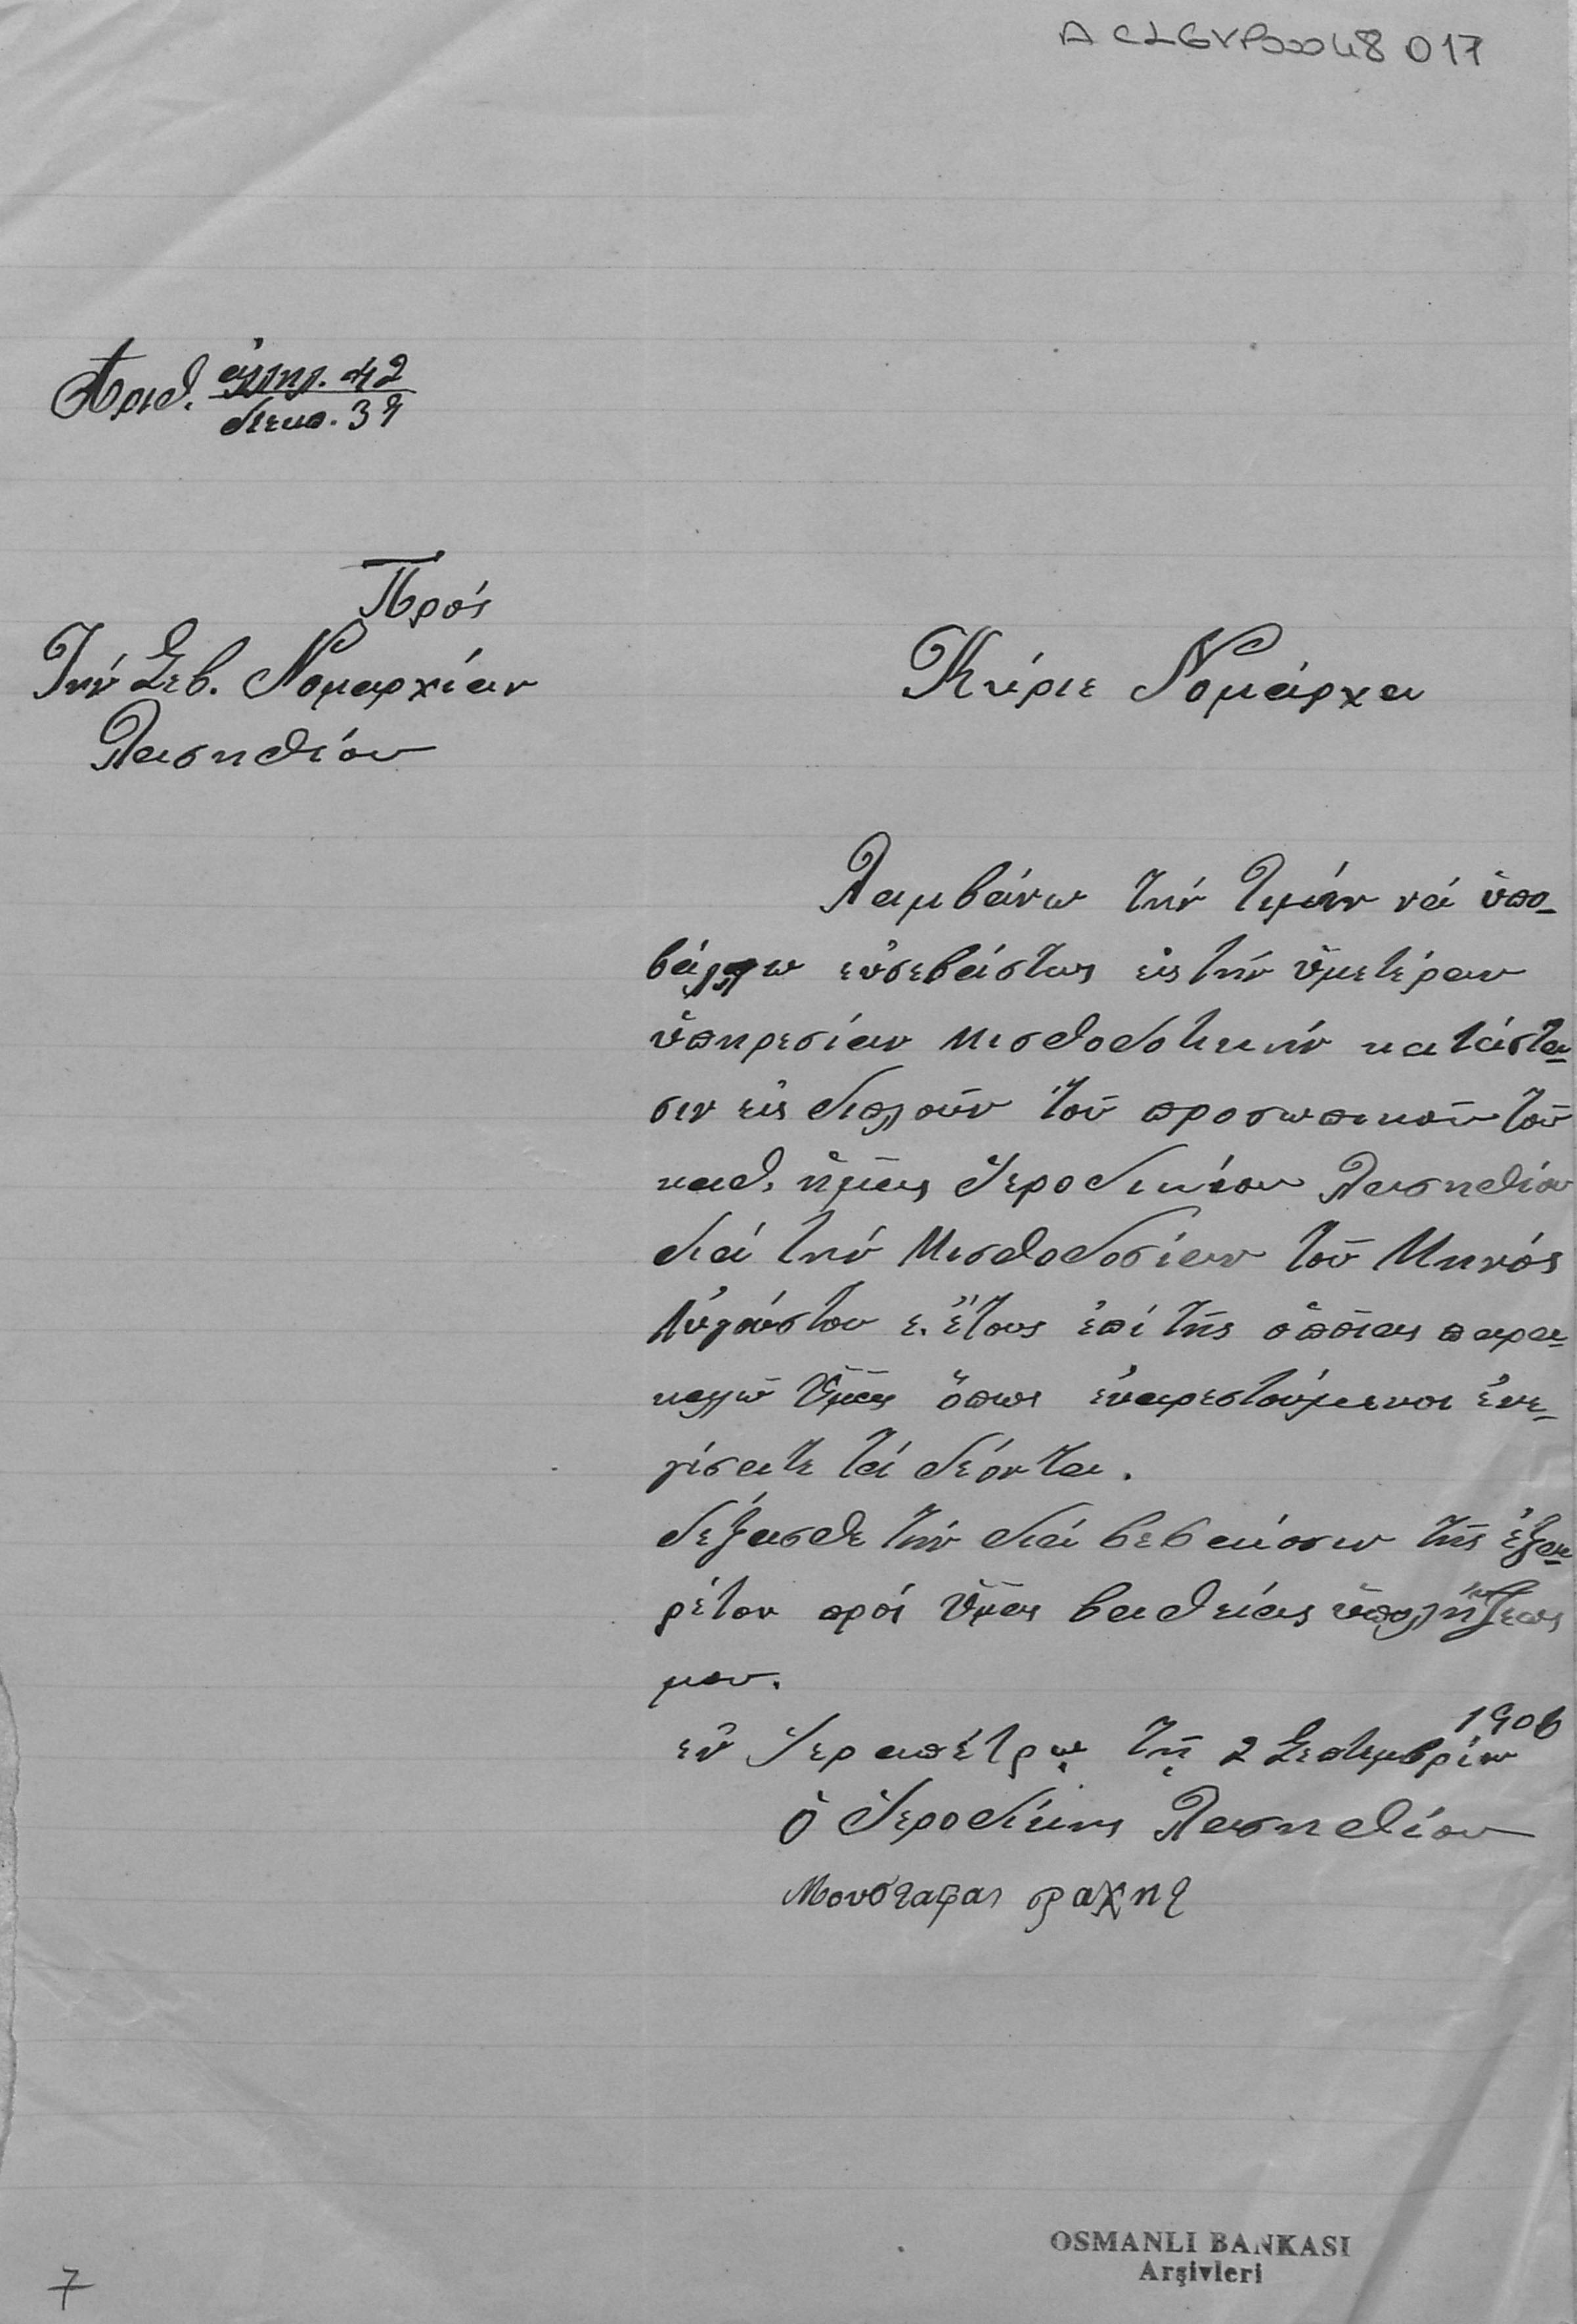 ACLGVP00048 017
Ἀριθ. ἀλλη. 42
διεκπ. 39
Πρός
Τήν Σεβ. Νομαρχίαν
Λασηθίου
Κύριε Νομάρχα
Λαμβάνω τήν τιμήν νά ὑπο-
βάλλω εὐσεβάστως εἰς τήν ὑμετέραν
ὑπηρεσίαν μισθοδοτικήν κατάστα-
σιν εἰς διπλοῦν τοῦ προσωπικοῦ τοῦ
καθ' ἡμᾶς Ἱεροδικείου Λασηθίου
διά τήν μισθοδοσίαν τοῦ Μηνός
Αὐγούστου ἔ. ἔτους ἐπί τῆς ὁποίας παρα-
καλῶ Ὑμᾶς ὅπως εὐαρεστούμενοι ἐνε-
γίσατε τά δέοντα.
δεξασθε τήν διά βεβαίοσιν τῆς ἐξαι-
ρέτου πρός Ὑμᾶς βαθείας ὑπολήψεως
μου.
ἐν Ἱεραπέτρῳ τῇ 2 Σεπτεμβρίου 1906
ὁ Ἱεροδίκης Λασηθίου
Μουσταφας
OSMANLI BANKASI
Arşivleri
7